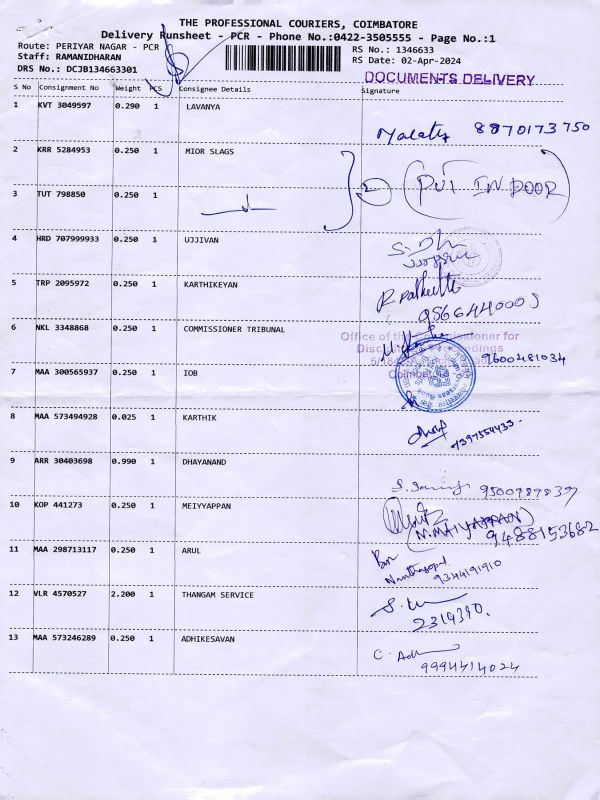 THE PROFESSIONAL COURIERS, COIMBATORE
Delivery Runsheet - PCR - Phone No.:0422-3505555 - Page No.:1
Route: PERIYAR NAGAR - PCR RS No.: 1346633
Staff: RAMANIDHARAN RS Date: 02-Apr-2024
DRS No.: DCJB134663301
DOCUMENTS DELIVERY
S No Consignment No Weight PCS Consignee Details Signature
1 KVT 3049597 0.290 1 LAVANYA
8870173750
2 KRR 5284953 0.250 1 MIOR SLAGS
2 PUT IN DOOR
3 TUT 798850 0.250 1
4 HRD 707999933 0.250 1 UJJIVAN
5 TRP 2095972 0.250 1 KARTHIKEYAN
6 NKL 3348868 0.250 1 COMMISSIONER TRIBUNAL
Office of the
9600481034
7 MAA 300565937 0.250 1 IOB
8 MAA 573494928 0.025 1 KARTHIK
7397554433
9 ARR 30403698 0.990 1 DHAYANAND
10 KOP 441273 0.250 1 MEIYYAPPAN
(N.MAIYAPPAN)
9488153682
11 MAA 298713117 0.250 1 ARUL
9344191910
12 VLR 4570527 2.200 1 THANGAM SERVICE
2319390.
13 MAA 573246289 0.250 1 ADHIKESAVAN
9994414024